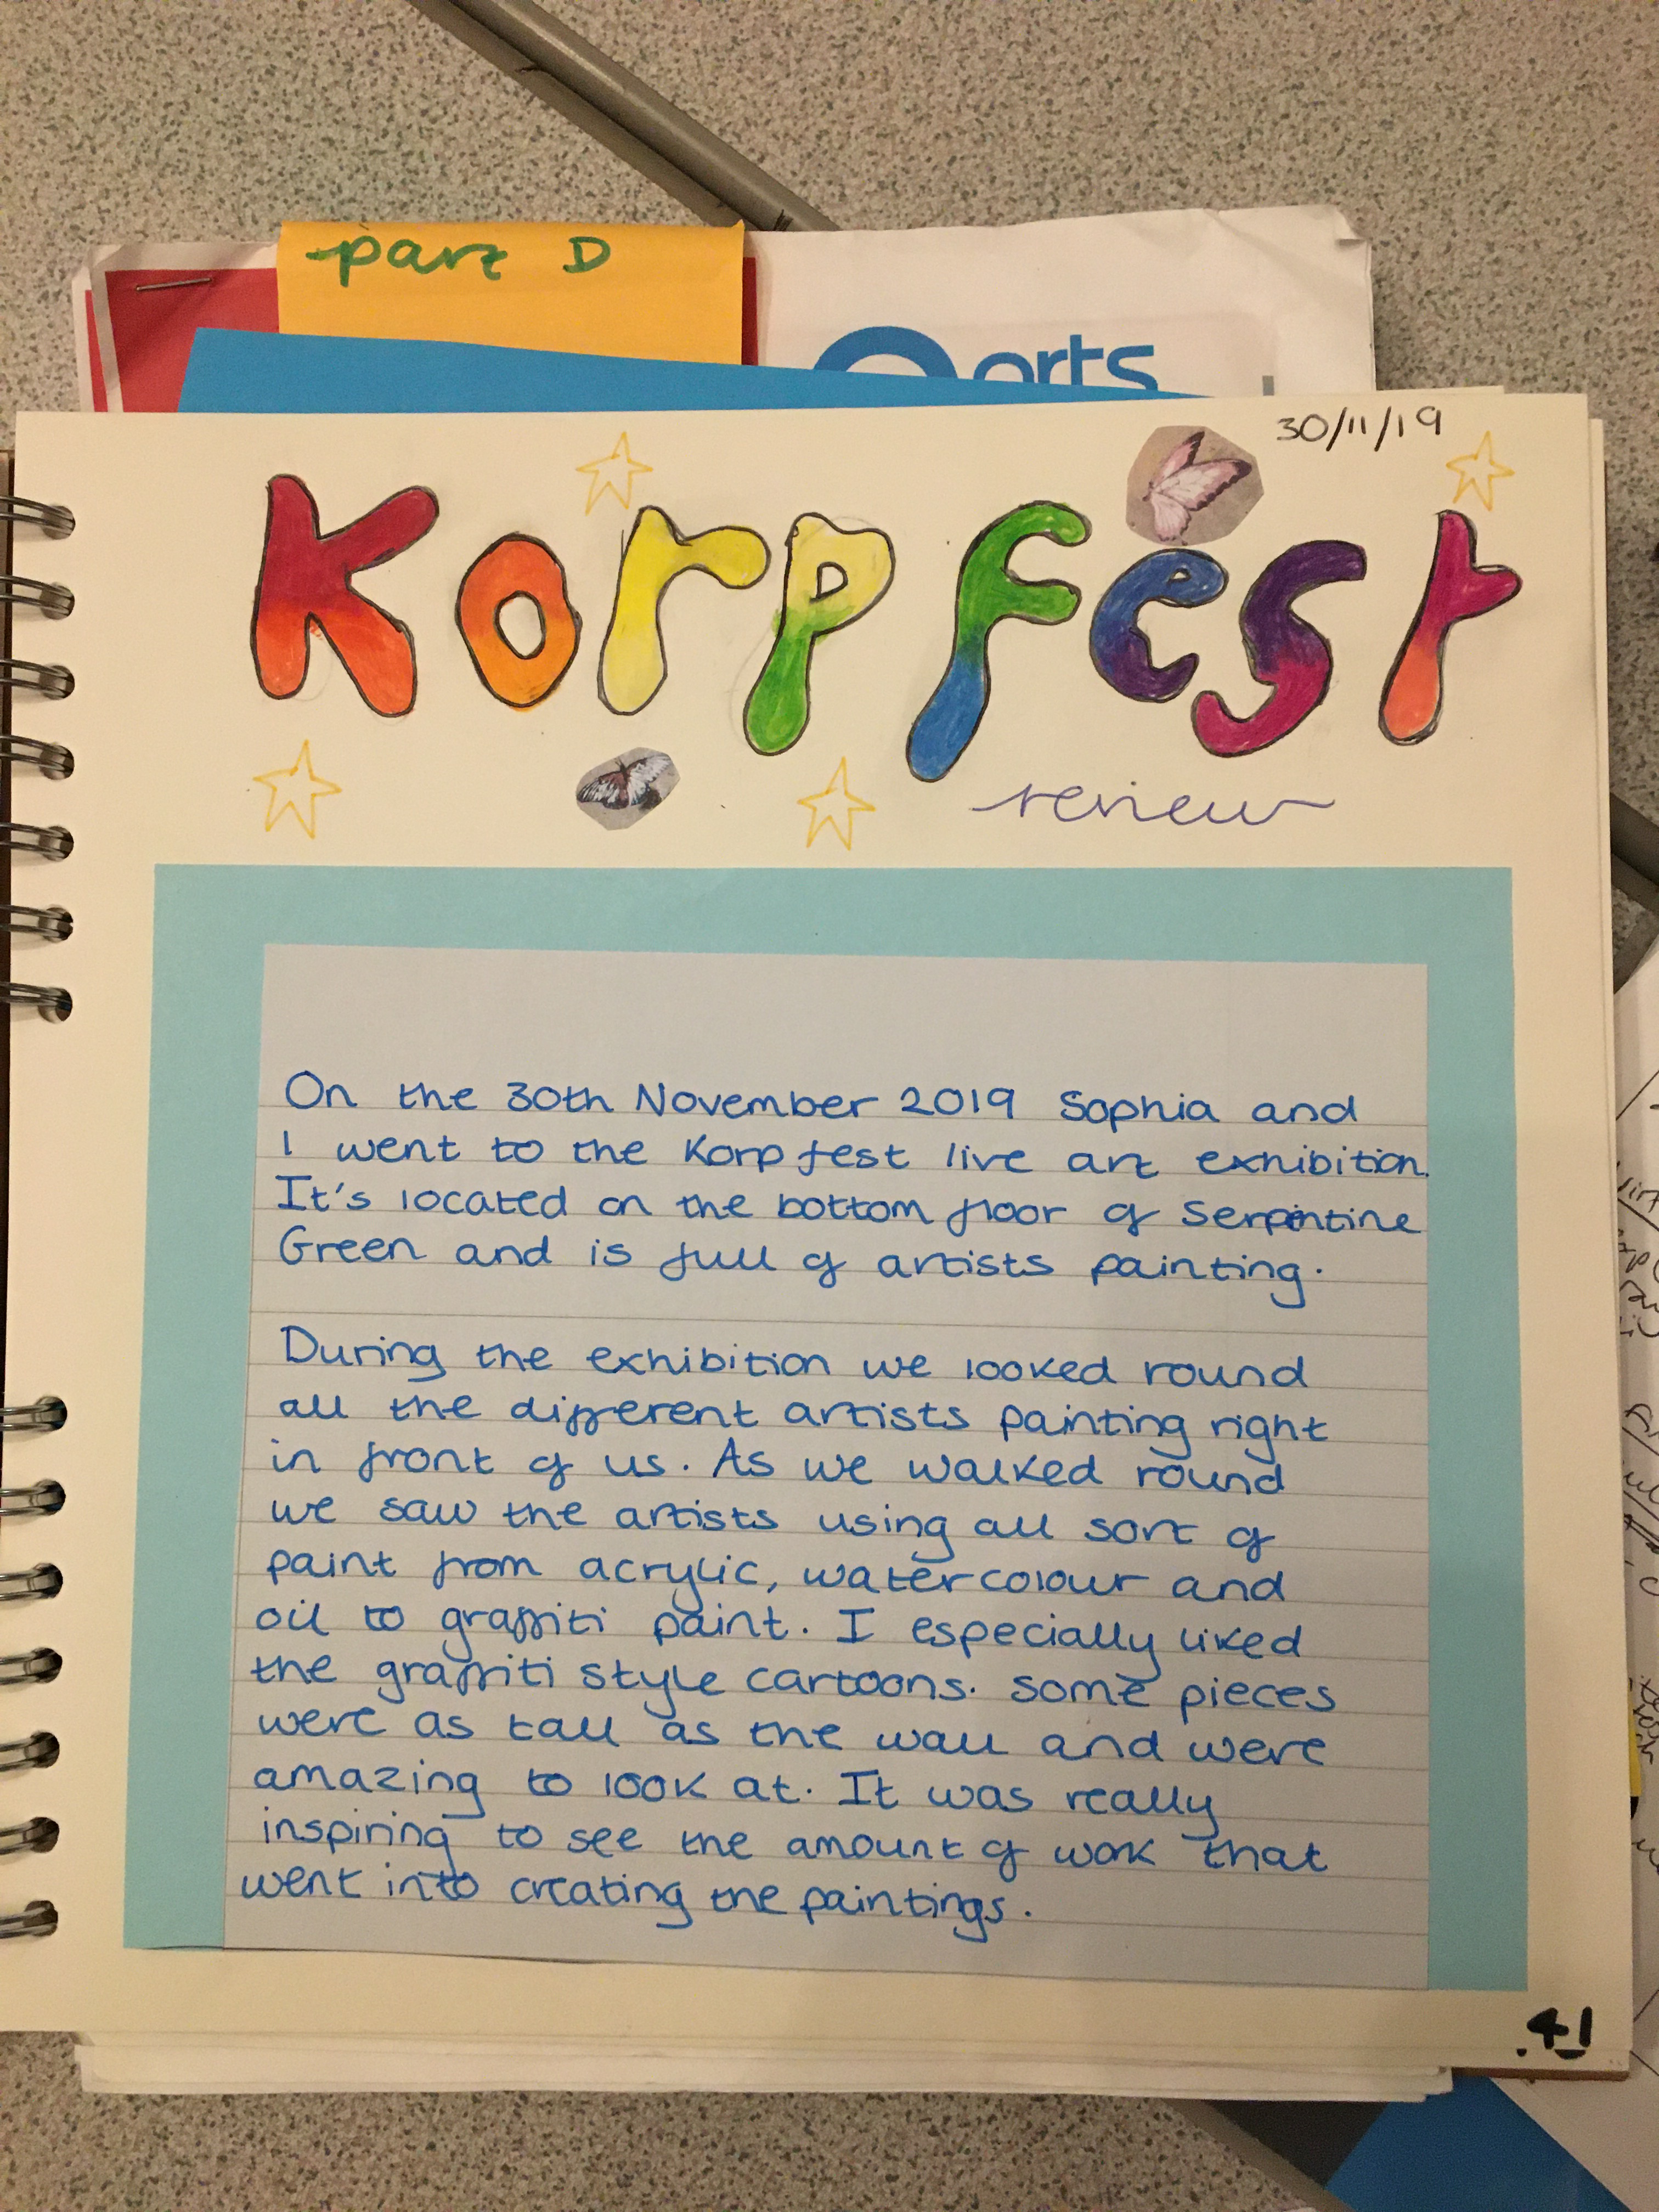 part D
arts
30/11/19
Korpfest
review
On the 30th November 2019 Sophia and
I went to the Korpfest live art exhibition.
It's located on the bottom floor of Serpentine
Green and is full of artists painting.
During the exhibition we looked round
all the different artists painting right
in front of us. As we walked round
we saw the artists using all sort of
paint from acrylic, watercolour and
oil to graffiti paint. I especially liked
the graffiti style cartoons. Some pieces
were as tall as the wall and were
amazing to look at. It was really
inspiring to see the amount of work that
went into creating the paintings.
41